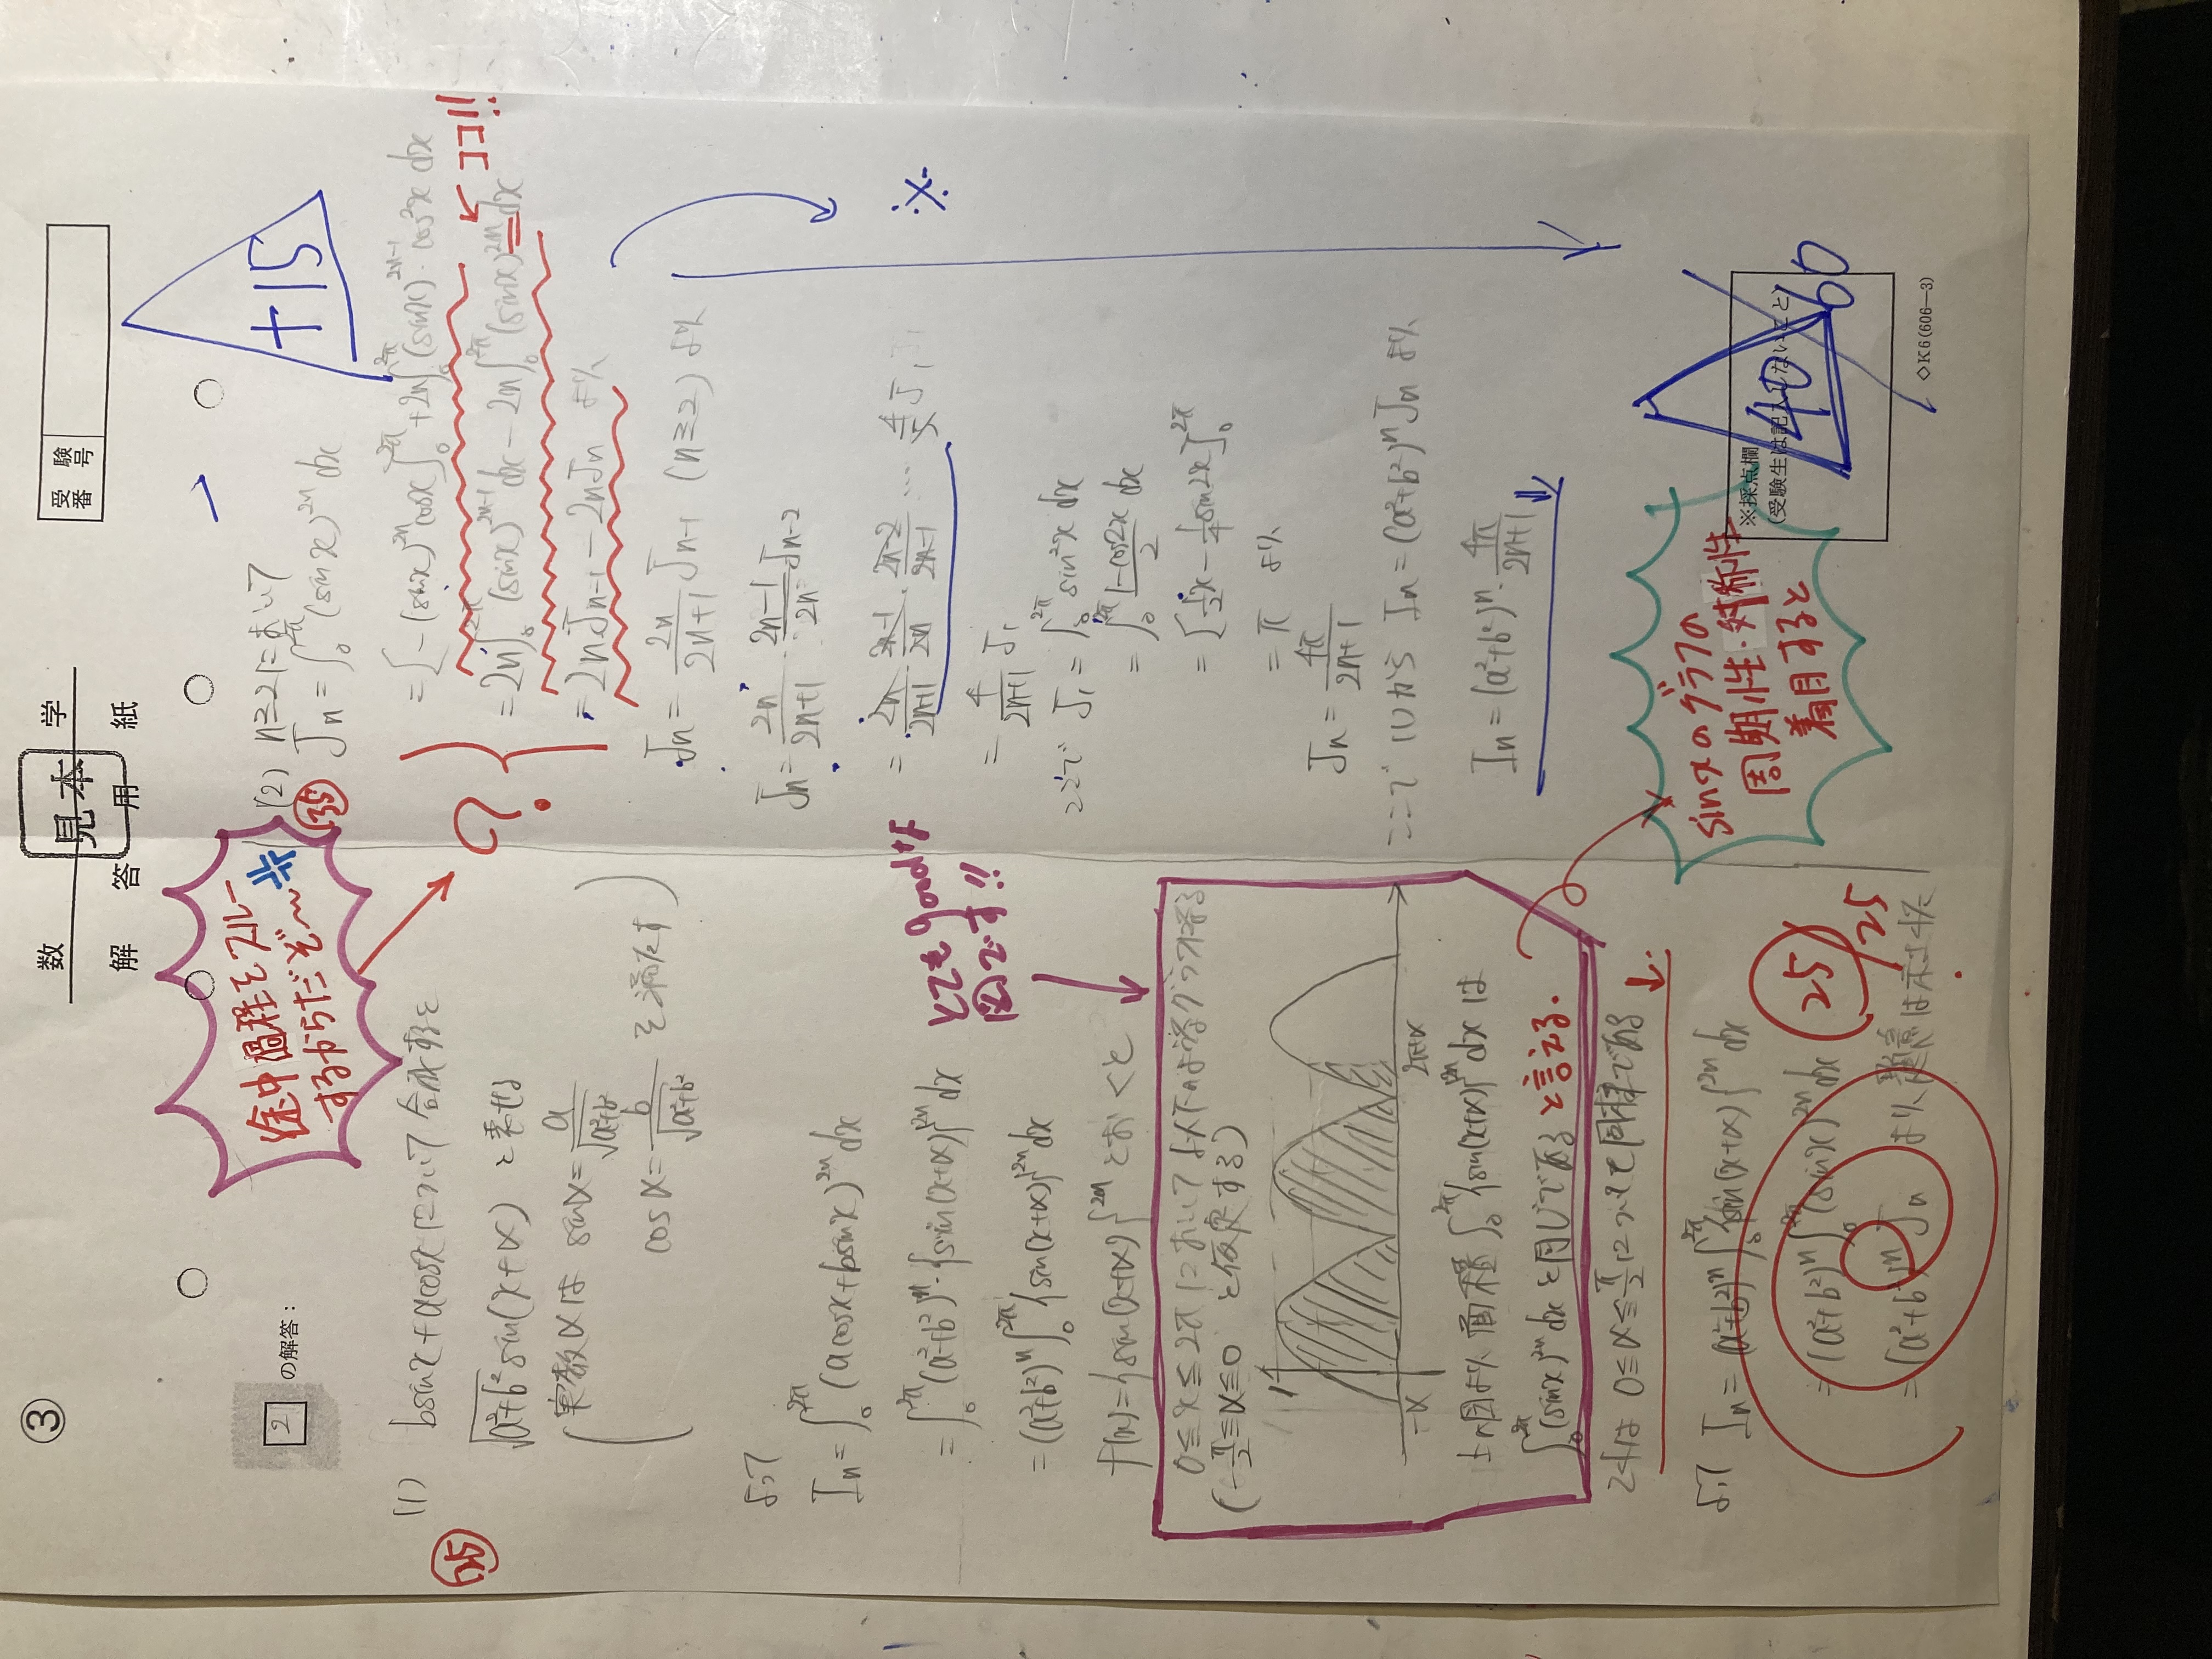 ③
数学
見本
解答用紙
受験番号
2 の解答:
(1) bsinx+acosxについて合成すると
√(a²+b²) sin(x+α) と表せる
実数αは sinα= a/√(a²+b²)
cosα= b/√(a²+b²) を満たす
よって
In = ∫₀^2π (acosx+bsinx)^2n dx
= ∫₀^2π (a²+b²)^n・{sin(x+α)}^2n dx
= (a²+b²)^n ∫₀^2π {sin(x+α)}^2n dx
f(x)={sin(x+α)}^2n とおくと
0≦x≦2πにおいて以下のようなグラフになる
(-π/2≦α≦0 と仮定する)
1
-α
2π-α
上の図より 面積 ∫₀^2π {sin(x+α)}^2n dx は
∫₀^2π (sinx)^2n dx と同じである と言える.
これは 0≦α≦π/2 についても同様である
よって In = (a²+b²)^n ∫₀^2π {sin(x+α)}^2n dx
= (a²+b²)^n ∫₀^2π (sinx)^2n dx
= (a²+b²)^n Jn より 題意は示された
25
25/25
とてもgoodな
図です!!
途中過程をフルー
するからだぞ~
(2) n≧2において
35
Jn = ∫₀^2π (sinx)^2n dx
= [-(sinx)^2n cosx]₀^2π + 2n∫₀^2π (sinx)^2n-1・cos²x dx
= 2n∫₀^2π (sinx)^2n-1 dx - 2n∫₀^2π (sinx)^2n dx
← ココ!!
= 2nJn-1 - 2nJn より
?
Jn = 2n/(2n+1) Jn-1 (n≧2) より
Jn = 2n/(2n+1)・(2n-1)/2n Jn-2
= 2n/(2n+1)・(2n-1)/2n・(2n-2)/(2n-1) … 4/5 J₁
= 4/(2n+1) J₁
ここで J₁ = ∫₀^2π sin²x dx
= ∫₀^2π (1-cos2x)/2 dx
= [1/2x - 1/4 sin2x]₀^2π
= π より
Jn = 4π/(2n+1)
ここで (1)から In = (a²+b²)^n Jn より
In = (a²+b²)^n・4π/(2n+1)
※
+15
sinxのグラフの
周期性・対称性
着目すると
※採点欄
(受験生は記入しないこと)
40/60
◇K6(606—3)